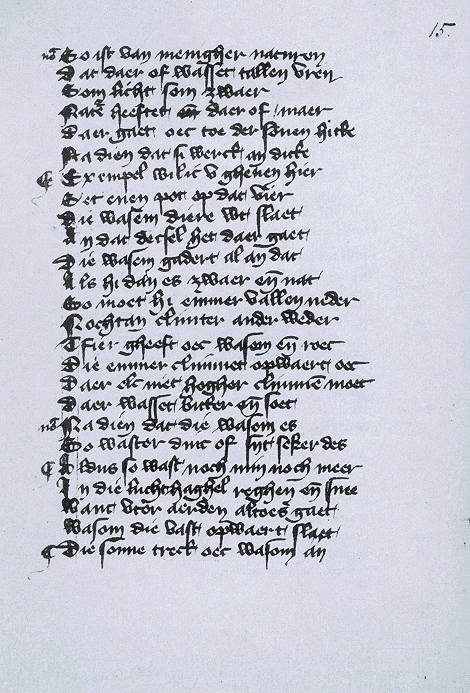 15.
So ist van menigher naturen
Dat daer of wasset tallen vren
Som licht som zwaer
Natr heeftet en daer of maer
Daer gaet oec toe der sonen hitte
Na dien dat si werct an ditte
Exempel wil ic v gheuen hier
Set enen pot op dat vier
Die wasem diere wt slaet
An dat decsel het daer gaet
Die wasem gadert al an dat
Als hi dan es zwaer en nat
So moet hi emmer vallen neder
Nochtan climter ander weder
Tfier gheeft oec wasom en roec
Die emmer climmet opwaert oec
Daer elc met hogher climme moet
Daer wasset bitter en soet
Na dien dat die wasom es
So waster dinc of sijt seker des
Aldus so wast noch min noch meer
In die lucht haghel reghen en snee
Want vter aerden altoes gaet
Wasom die vast opwaert slaet
Die sonne treck oec wasom an